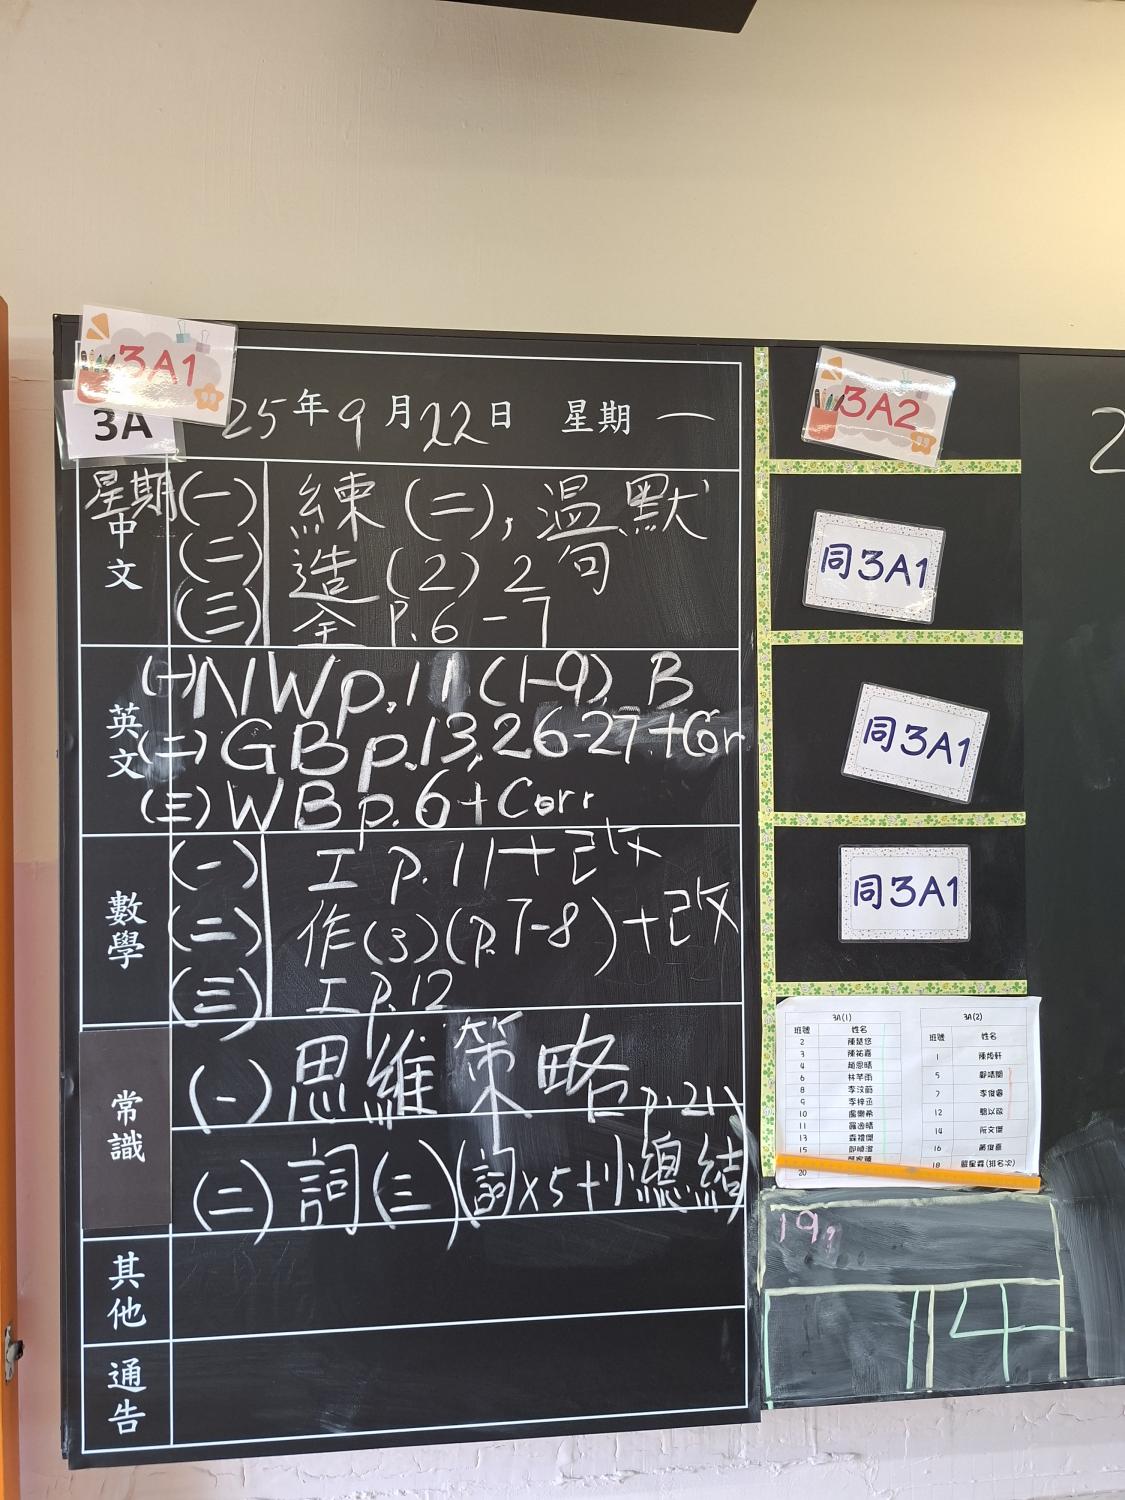 3A1
3A
25年9月22日 星期一
星期
中文
(一) 練(二), 溫默
(二) 造(2) 2句
(三) 全 P.6-7
英文
(一) NW p.11 (1-9) B
(二) GB p.13, 26-27 + Corr
(三) WB p.6 + Corr
數學
(一) 工 p.11 + 改
(二) 作(3)(p.7-8) + 改
(三) 工 p.12
常識
(一) 思維策略 p.21
(二) 詞(三)(詞x5+小總結)
其他
通告
3A2
同3A1
同3A1
同3A1
2
3A(1)
班號 姓名
2
3 陳祐嘉
4
6 林芊雨
8
9 李梓丞
10 盧樂希
11
13 霖禮傑
15
20
3A(2)
班號 姓名
1
5
7 李俊睿
12
14 阮文傑
16 黃俊熹
18
19,
14